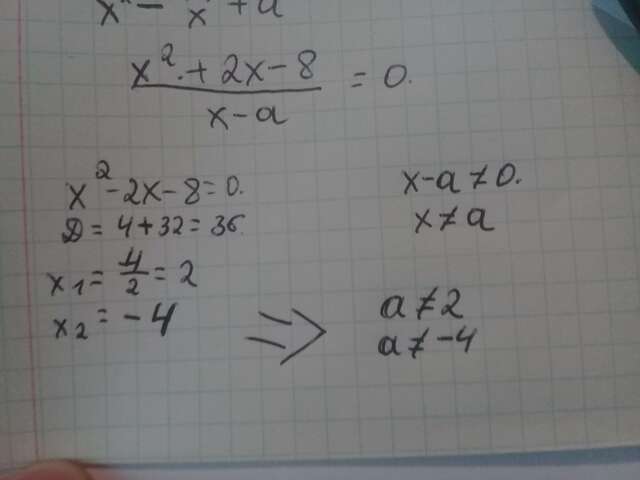 x² - x + a
x² + 2x - 8
―――――― = 0.
x - a
x² - 2x - 8 = 0.
D = 4 + 32 = 36.
x₁ = 4/2 = 2
x₂ = -4
x - a ≠ 0.
x ≠ a
=> a ≠ 2
a ≠ -4